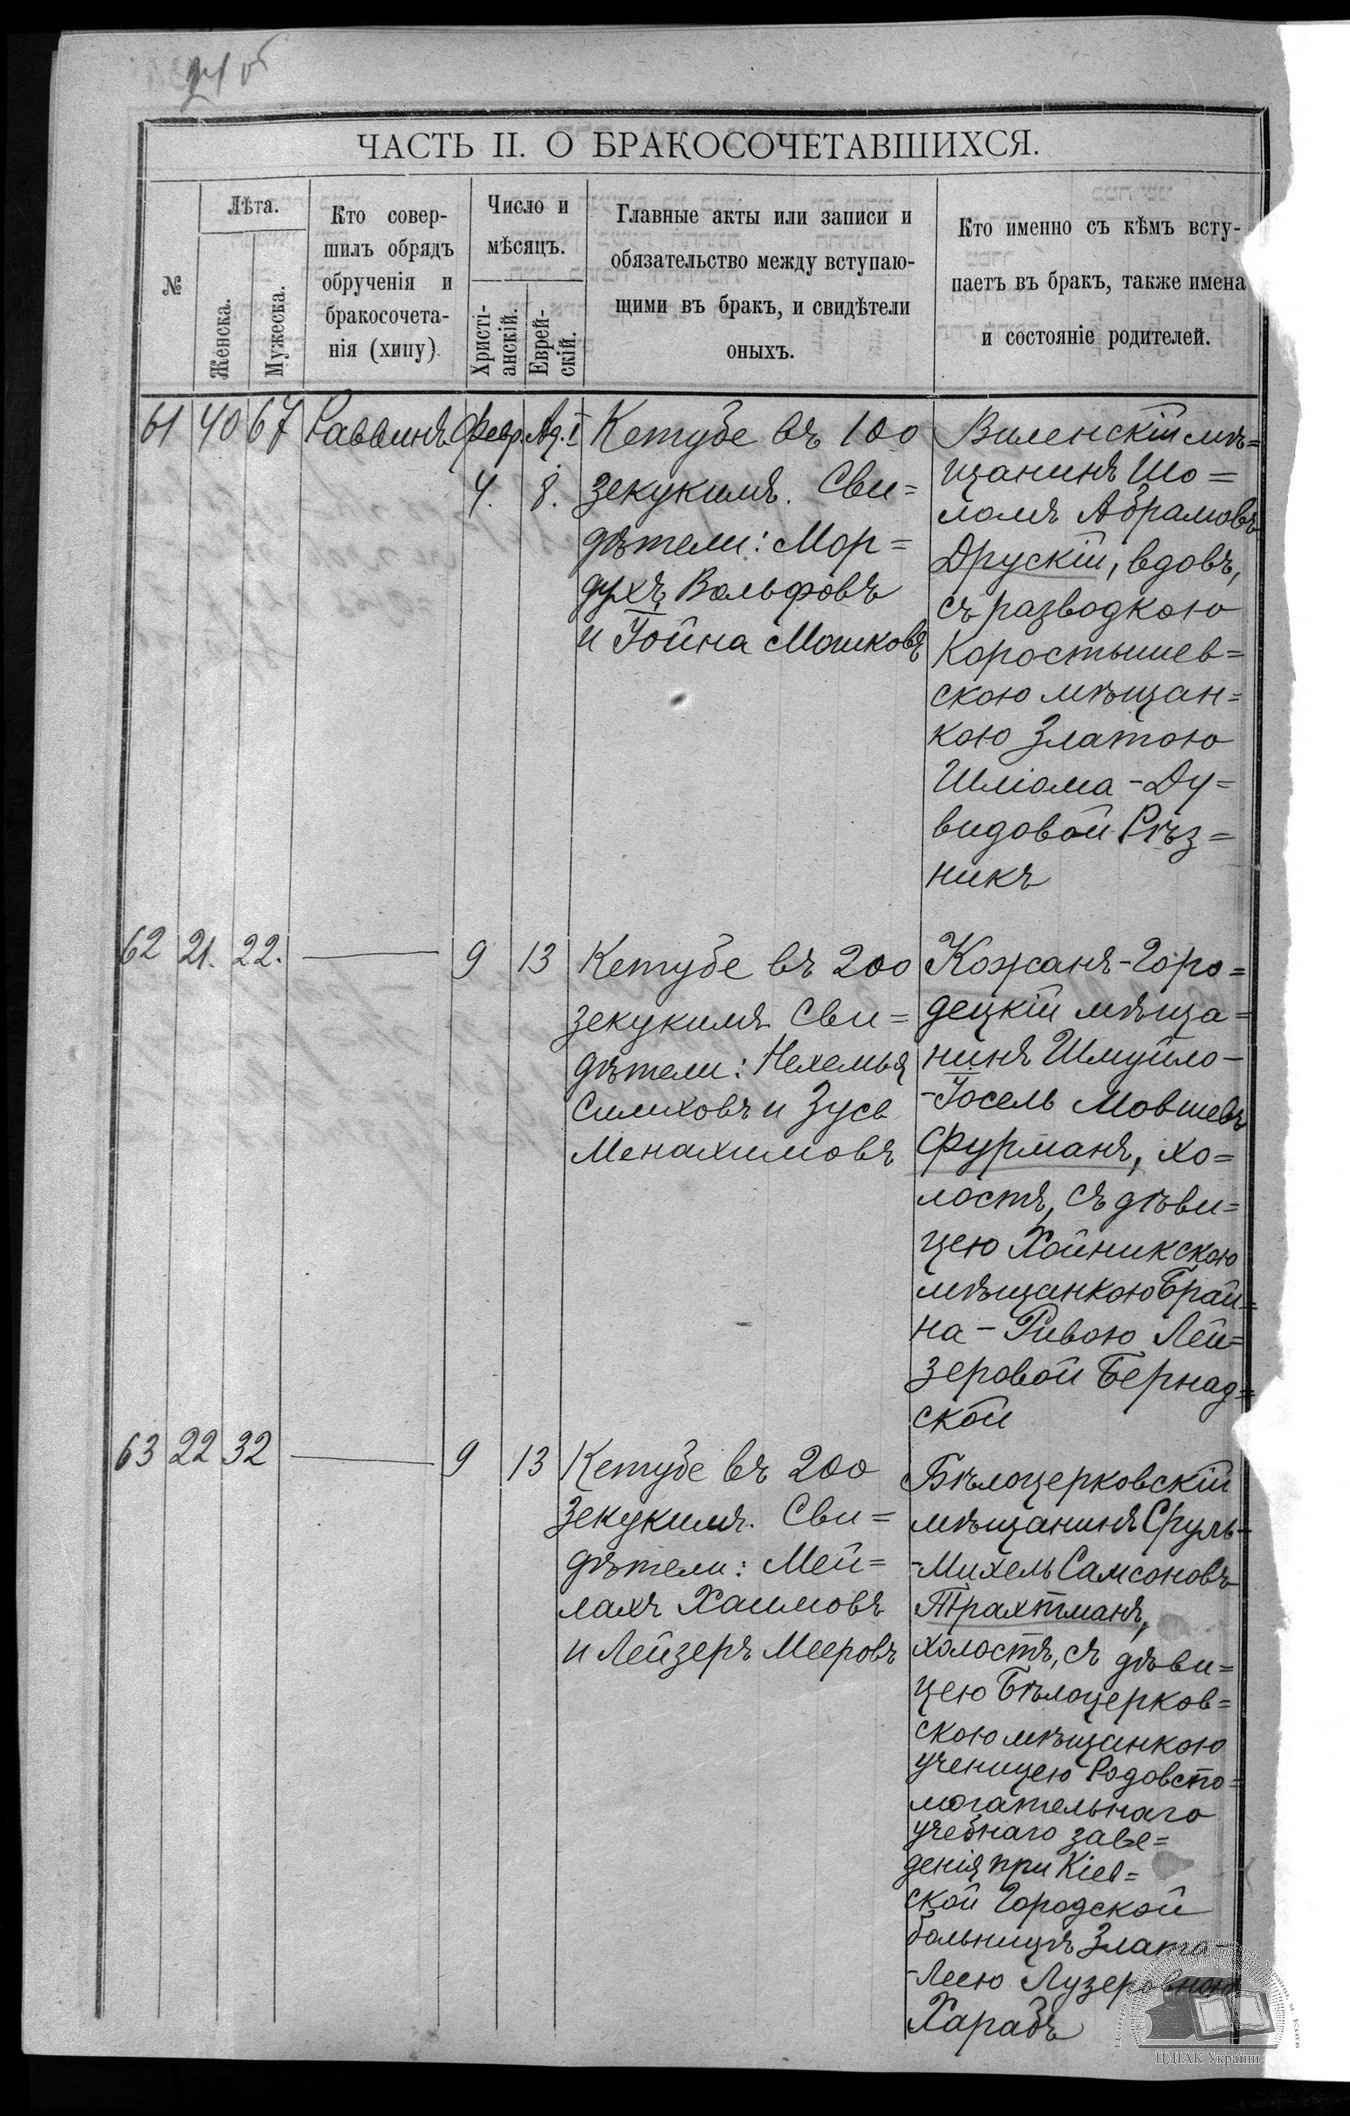 ЧАСТЬ II. О БРАКОСОЧЕТАВШИХСЯ.
№
Лѣта.
Женска.
Мужеска.
Кто совер-
шилъ обрядъ
обрученія и
бракосочета-
нія (хипу)
Число и
мѣсяцъ.
Христі-
анскій.
Еврей-
скій.
Главные акты или записи и
обязательство между вступаю-
щими въ бракъ, и свидѣтели
оныхъ.
Кто именно съ кѣмъ всту-
паетъ въ бракъ, также имена
и состояніе родителей.
61 40 67 Раввинъ Февр. Ад. I
4. 8.
Кетубе въ 100
зекукимъ. Сви=
дѣтели: Мор=
духъ Вольфовъ
и Іойна Мошковъ
Виленскій мѣ=
щанинъ Шо=
ломъ Абрамовъ
Друскій, вдовъ,
съ разводкою
Коростышев=
скою мѣщан=
кою Златою
Шліома-Ду=
видовой Рѣз=
никъ
62 21. 22. 9 13
Кетубе въ 200
зекукимъ. Сви=
дѣтели: Нехемья
Симховъ и Зусь
Менахимовъ
Кожанъ-Горо=
децкій мѣща=
нинъ Шмуйло-
-Іосель Мовшевъ
Фурманъ, хо=
лостъ, съ дѣви=
цею Хойникскою
мѣщанкою Брай=
на-Ривою Лей=
зеровой Бернад=
ской
63 22 32 9 13
Кетубе въ 200
зекукимъ. Сви=
дѣтели: Мей=
лахъ Хаимовъ
и Лейзеръ Мееровъ
Бѣлоцерковскій
мѣщанинъ Сруль-
-Михель Самсоновъ
Трахтманъ,
холостъ, съ дѣви=
цею Бѣлоцерков=
скою мѣщанкою
ученицею Родовспо=
могательнаго
учебнаго заве=
денія при Кіев=
ской Городской
больницѣ Злато-
-Леею Лузеровною
Харабъ
ЦДІАК України